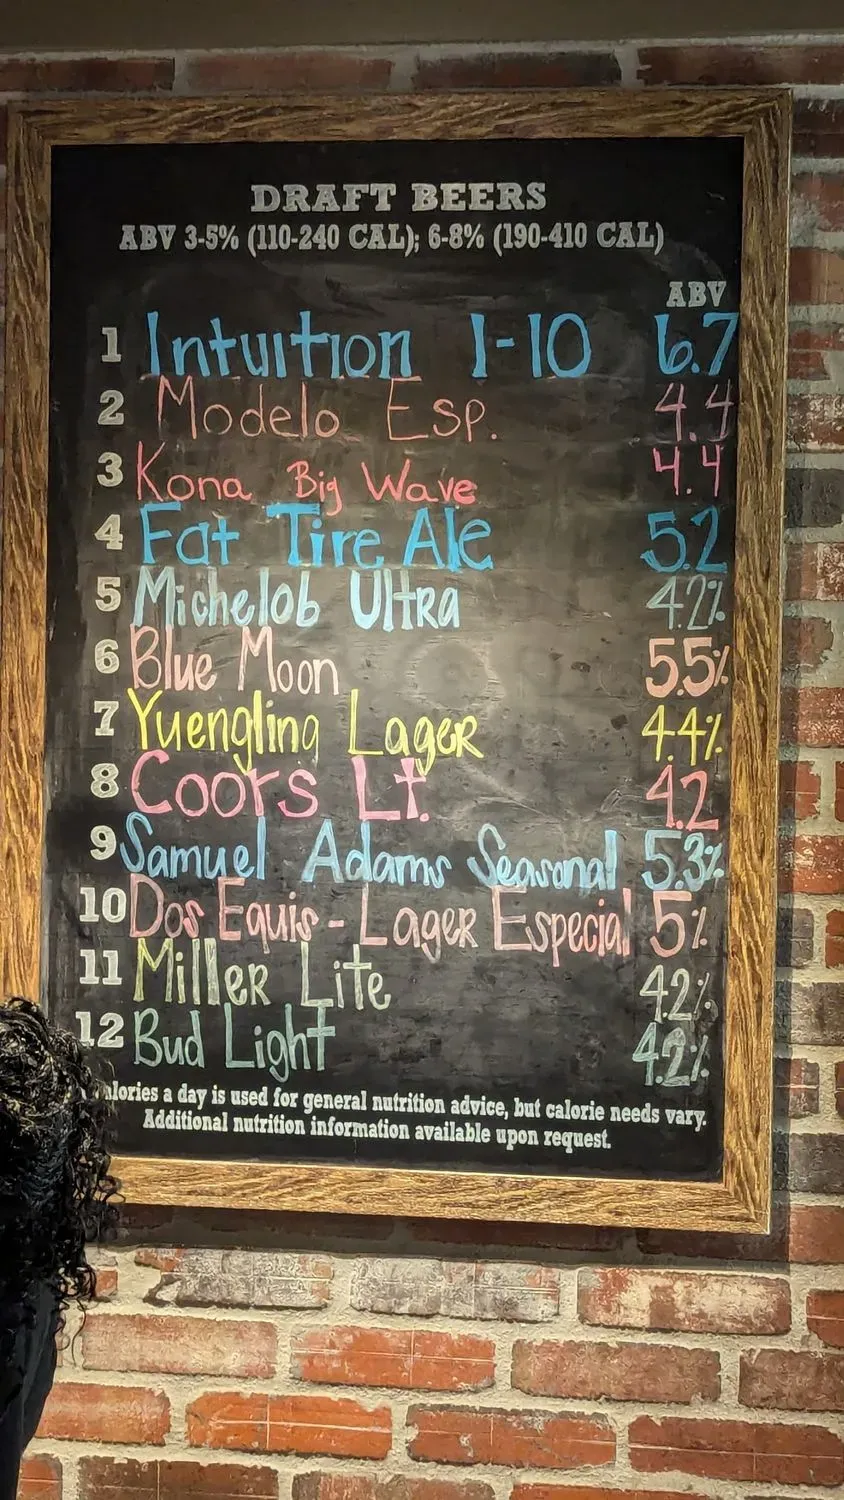 DRAFT BEERS
ABV 3-5% (110-240 CAL); 6-8% (190-410 CAL)
ABV
1 Intuition 1-10 6.7
2 Modelo Esp. 4.4
3 Kona Big Wave 4.4
4 Fat Tire Ale 5.2
5 Michelob Ultra 4.2%
6 Blue Moon 5.5%
7 Yuengling Lager 4.4%
8 Coors Lt. 4.2
9 Samuel Adams Seasonal 5.3%
10 Dos Equis - Lager Especial 5%
11 Miller Lite 4.2%
12 Bud Light 4.2%
a day is used for general nutrition advice, but calorie needs vary.
Additional nutrition information available upon request.